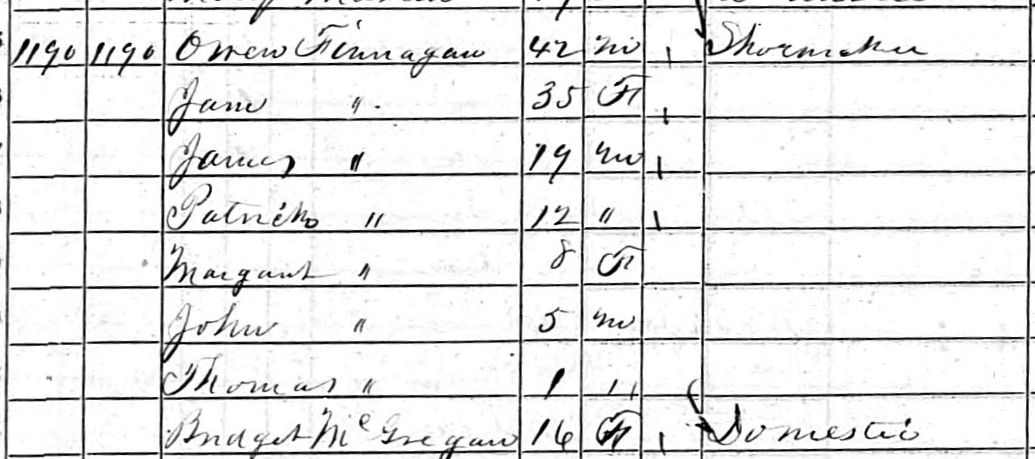 1190 1190 Owen Finnagan 42 m 1 Shoemaker
Jane " 35 F 1
James " 19 m 1
Patrick " 12 " 1
Margaret " 8 F
John " 5 m
Thomas " 1 "
Bridget McGregan 16 F 1 Domestic